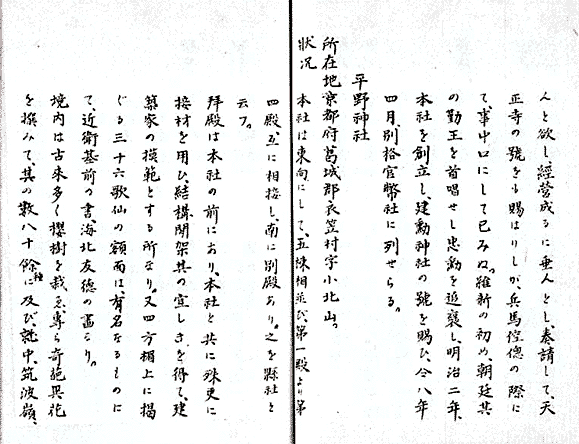 人と欲し、經營成るに垂んとし、奏請して、天
正寺の號をも賜はりしが、兵馬倥偬の際に
て、事中口にして已みぬ。維新の初め、朝廷其
の勤王を首唱せし忠勳を追褒し、明治二年、
本社を創立し、建勳神社の號を賜ひ、今八年
四月、別格官幣社に列せらる。
平野神社
所在地京都府葛城郡衣笠村字小北山。
狀况 本社は東向にして、五棟相並び、第一殿より第
四殿、互に相接し、南に別殿あり。之を縣社と
云フ。
拜殿は本社の前にあり、本社と共に殊更に
接材を用ひ、結構間架其の宜しきを得て、建
築家の模範とする所なり。又四方楣上に揭
ぐる三十六歌仙の額面は、有名なるものに
て、近衛基前の書、海北友德の畫なり。
境内は古來多く櫻樹を栽ゑ、專ら奇葩異花
を撰みて、其の數八十餘種に及び、就中、筑波嶺、